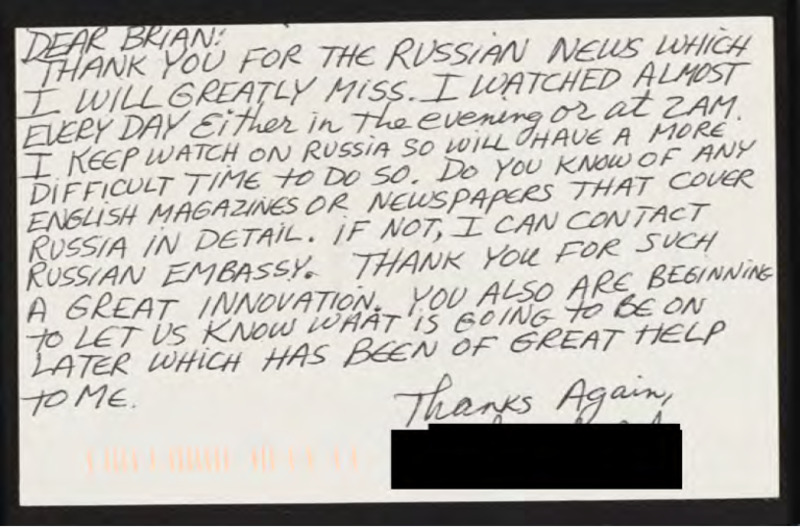 DEAR BRIAN:
THANK YOU FOR THE RUSSIAN NEWS WHICH
I WILL GREATLY MISS. I WATCHED ALMOST
EVERY DAY Either in the evening or at 2AM.
I KEEP WATCH ON RUSSIA SO WILL HAVE A MORE
DIFFICULT TIME TO DO SO. DO YOU KNOW OF ANY
ENGLISH MAGAZINES OR NEWSPAPERS THAT COVER
RUSSIA IN DETAIL. IF NOT, I CAN CONTACT
RUSSIAN EMBASSY. THANK YOU FOR SUCH
A GREAT INNOVATION. YOU ALSO ARE BEGINNING
TO LET US KNOW WHAT IS GOING TO BE ON
LATER WHICH HAS BEEN OF GREAT HELP
TO ME.
Thanks Again,